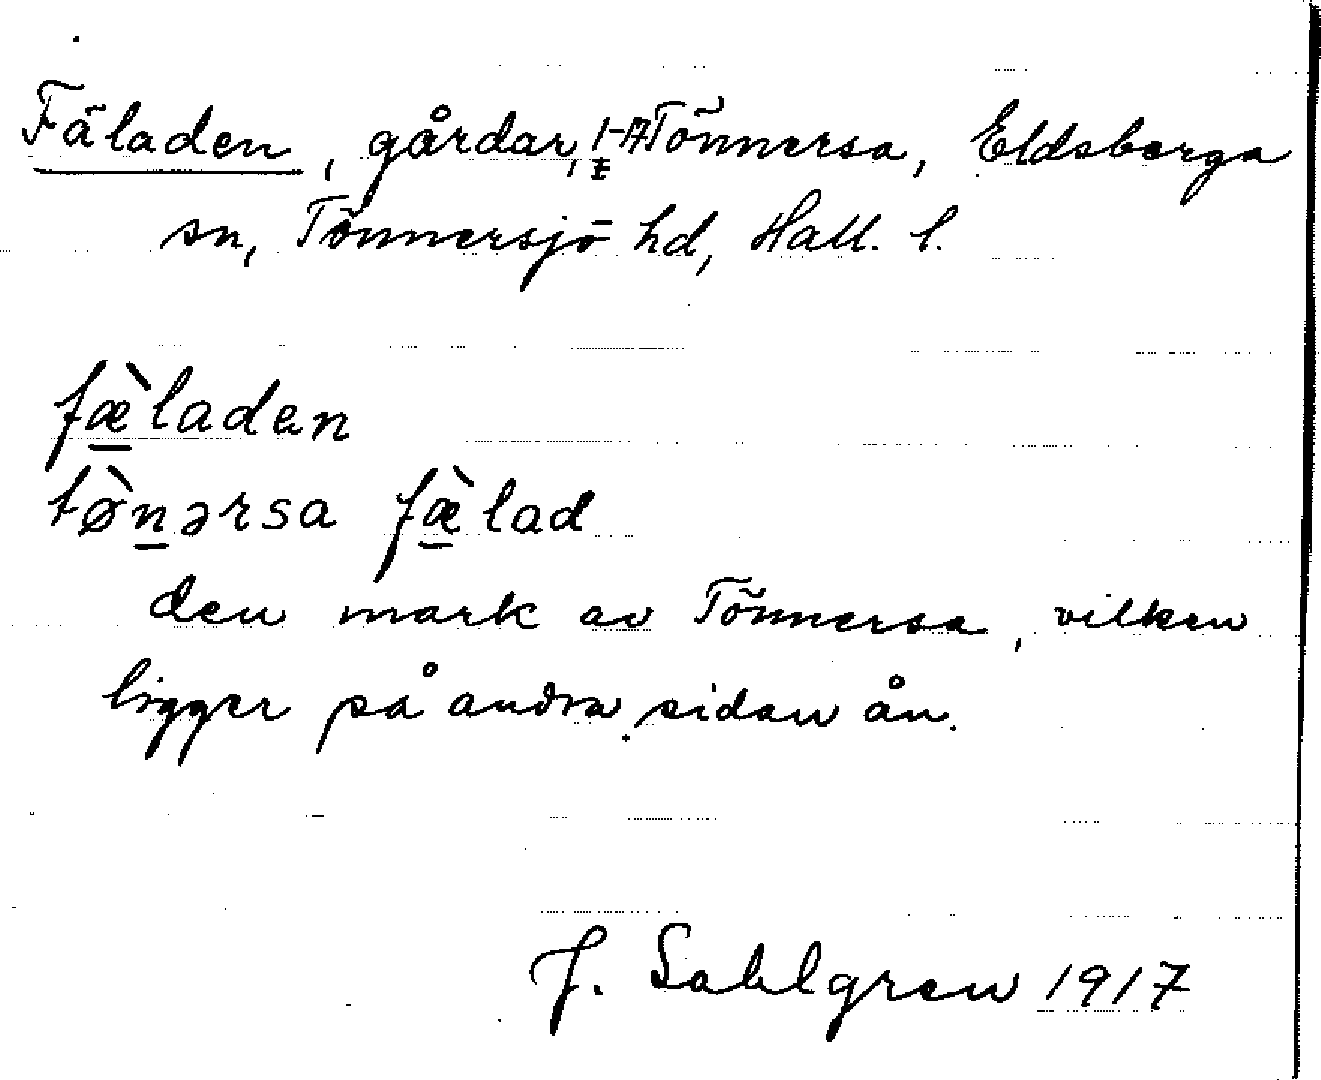 Fäladen, gårdar, Tönnersa, Eldsberga
sn, Tönnersjö hd, Hall. l.
fæ̀laden
tø̀nərsa fæ̀lad
den mark av Tönnersa, vilken
ligger på andra sidan ån.
J. Sahlgren 1917